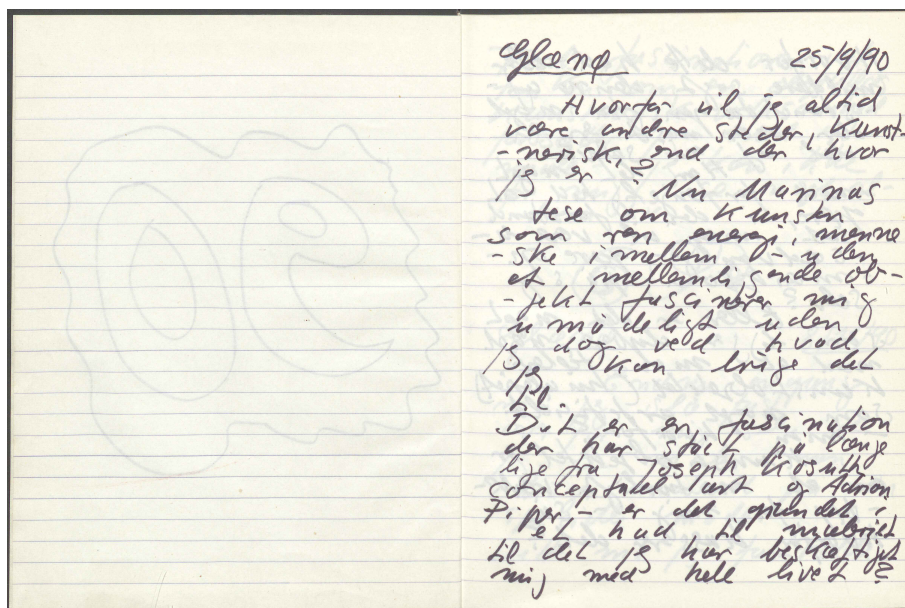 Glænø 25/9/90
Hvorfor vil jeg altid
være andre steder, kunst-
-nerisk, end der hvor
jeg er? Nu Marinas
tese om kunsten
som ren energi, menne
-ske imellem - uden
et mellemliggende ob-
-jekt fascinerer mig
umådeligt uden
jeg dog ved hvad
jeg kan bruge det
til.
Det er en fascination
der har stået på længe
lige fra Joseph Kosuth
conceptuel art og Adrian
Piper - er det grundet i
et had til maleriet
til det jeg har beskæftiget
mig med hele livet?